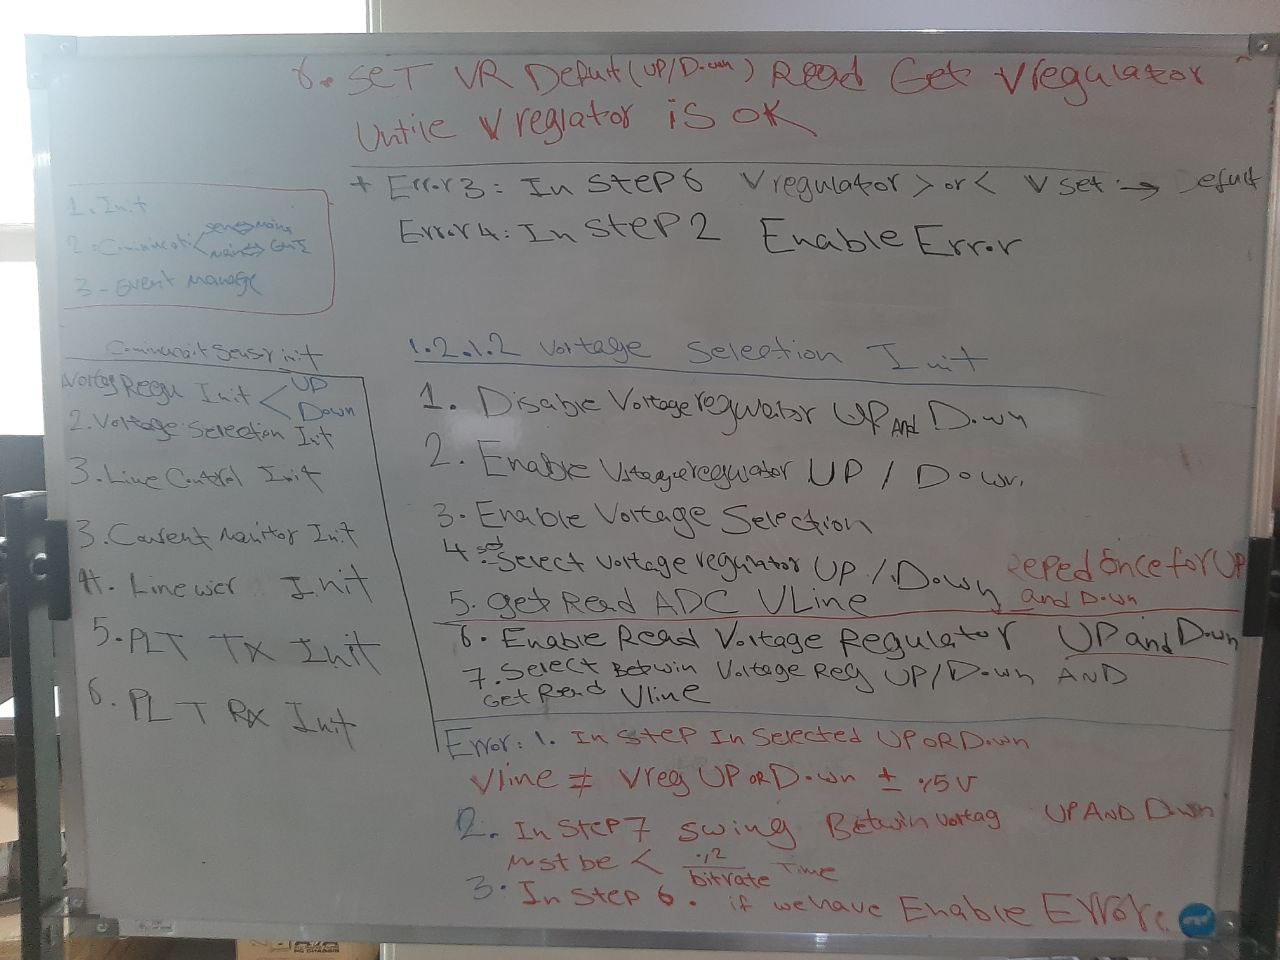 6. SET VR Defult (UP/Down) Read Get Vregulator
Untile Vreglator is OK
+ Error3: In STEP6 Vregulator > or < V set → Defult
Error4: In STEP2 Enable Error
1. Init
2.
3- Event Manage
Init
Init < UP
Down
2. Voltage Selection Init
3. Line Control Init
3. Current Monitor Init
4. Line wer Init
5. PLT TX Init
6. PLT RX Init
1.2.1.2 Voltage Selection Init
1. Disable Voltage regulator UP And Down
2. Enable Voltage regulator UP / Down
3. Enable Voltage Selection
4. Select Voltage regulator UP / Down
Reped Once for UP and Down
5. get Read ADC VLine
6. Enable Read Voltage Regulator UP and Down
7. Select Betwin Voltage Reg UP/Down AND
Get Read Vline
Error: 1. In STEP In Selected UP OR Down
Vline ≠ Vreg UP OR Down ± %5 V
2. In STEP 7 Swing Betwin Voltag UP AND Down
Must be < %2/bitrate Time
3. In STEP 6. if we have Enable Error